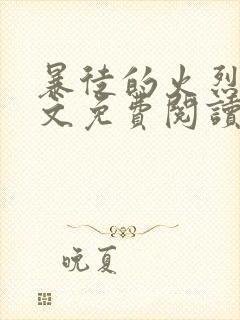 暴徒的火烈
文免費閱讀
晚夏